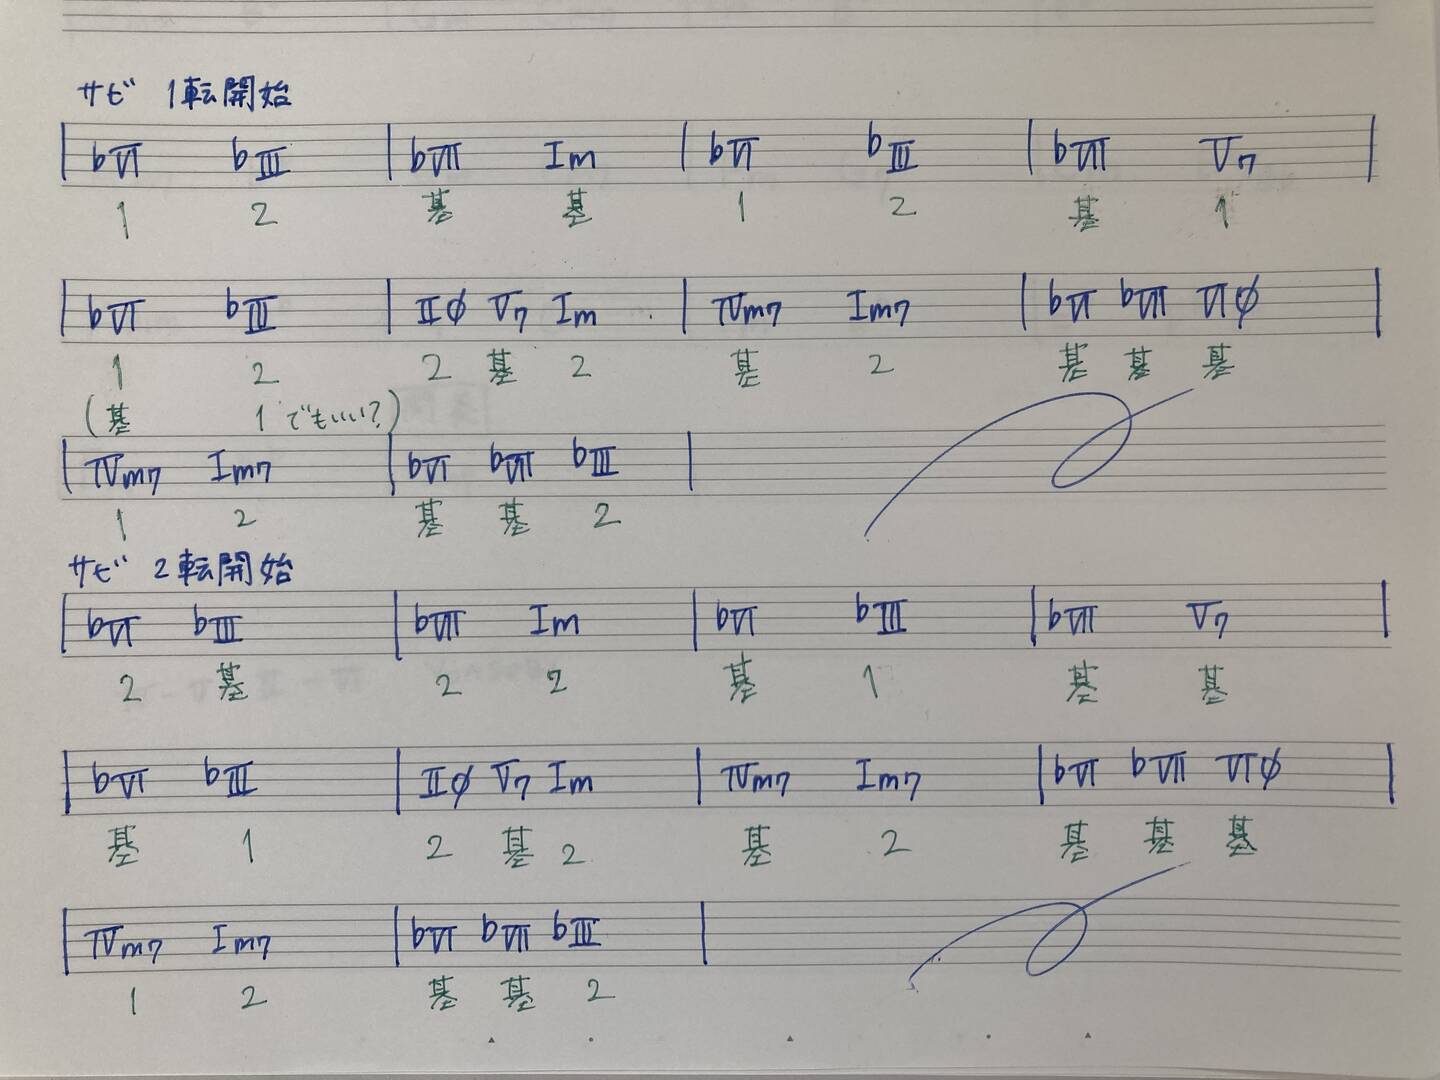 サビ 1転開始
♭Ⅵ ♭Ⅲ ♭Ⅶ Ⅰm ♭Ⅵ ♭Ⅲ ♭Ⅶ Ⅴ7
1 2 基 基 1 2 基 1
♭Ⅵ ♭Ⅲ Ⅱφ Ⅴ7 Ⅰm Ⅳm7 Ⅰm7 ♭Ⅵ ♭Ⅶ Ⅵφ
1 2 2 基 2 基 2 基 基 基
(基 1でもいい?)
Ⅳm7 Ⅰm7 ♭Ⅵ ♭Ⅶ ♭Ⅲ
1 2 基 基 2
サビ 2転開始
♭Ⅵ ♭Ⅲ ♭Ⅶ Ⅰm ♭Ⅵ ♭Ⅲ ♭Ⅶ Ⅴ7
2 基 2 2 基 1 基 基
♭Ⅵ ♭Ⅲ Ⅱφ Ⅴ7 Ⅰm Ⅳm7 Ⅰm7 ♭Ⅵ ♭Ⅶ Ⅵφ
基 1 2 基 2 基 2 基 基 基
Ⅳm7 Ⅰm7 ♭Ⅵ ♭Ⅶ ♭Ⅲ
1 2 基 基 2